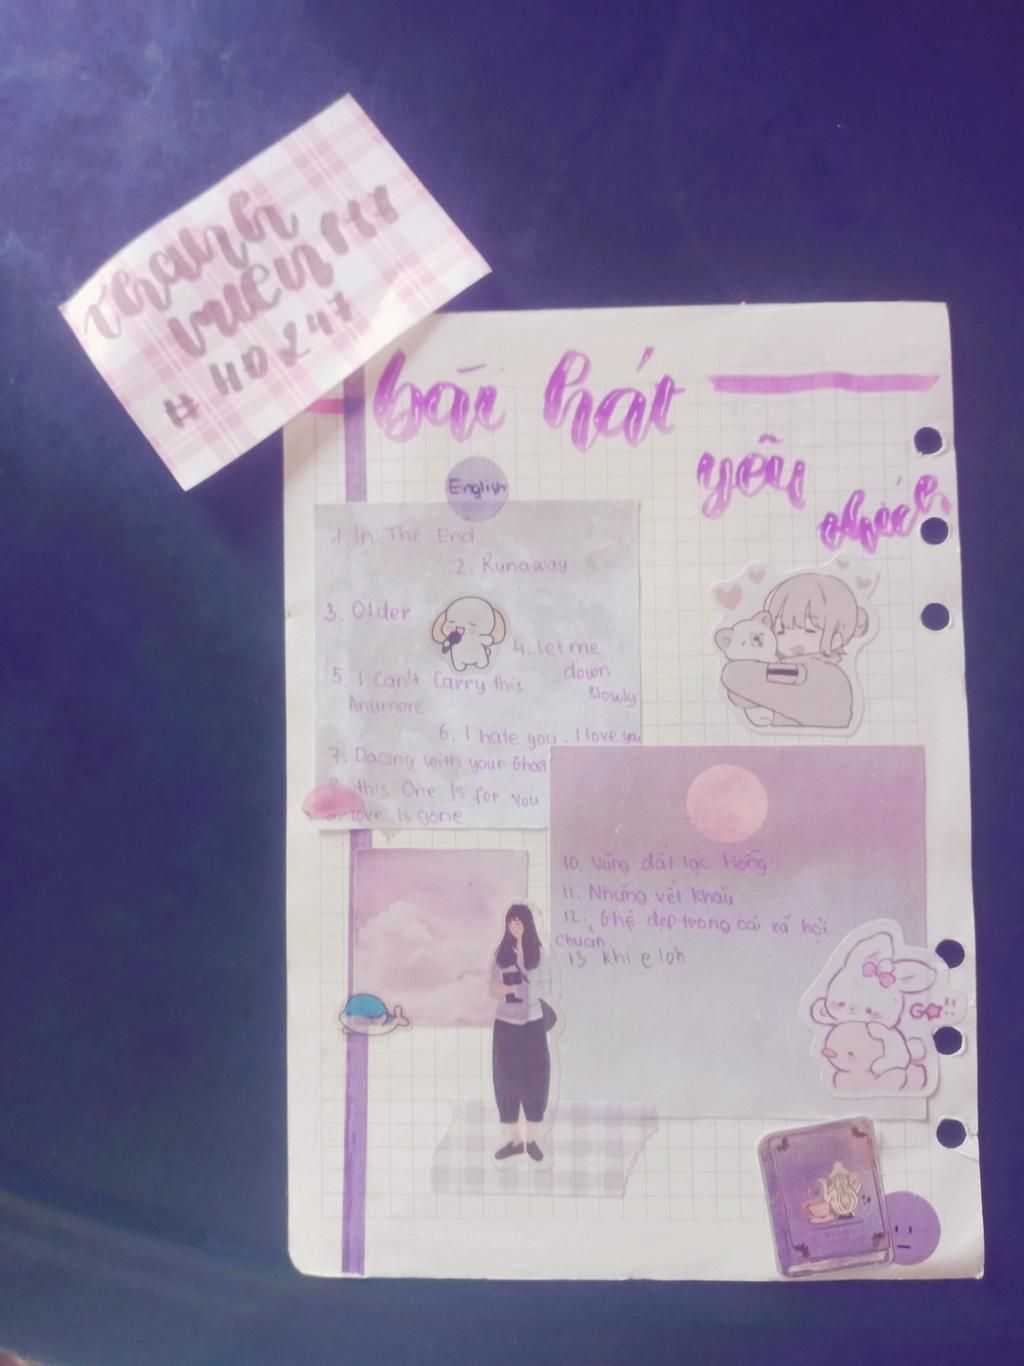 thành
viên
#HD247
bài hát
yêu
thích
English
1. In The End
2. Runaway
3. Older
4. let me
down
slowly
5. I Can't Carry this
Anymore
6. I hate you. I love you
7. Dacing with your Ghost
this One Is for You
love Is gone
10. Vùng đất lạc Hồng
11. Những vết khâu
12. Ghệ đẹp trong cái xã hội
chuẩn
13 khi e lớn